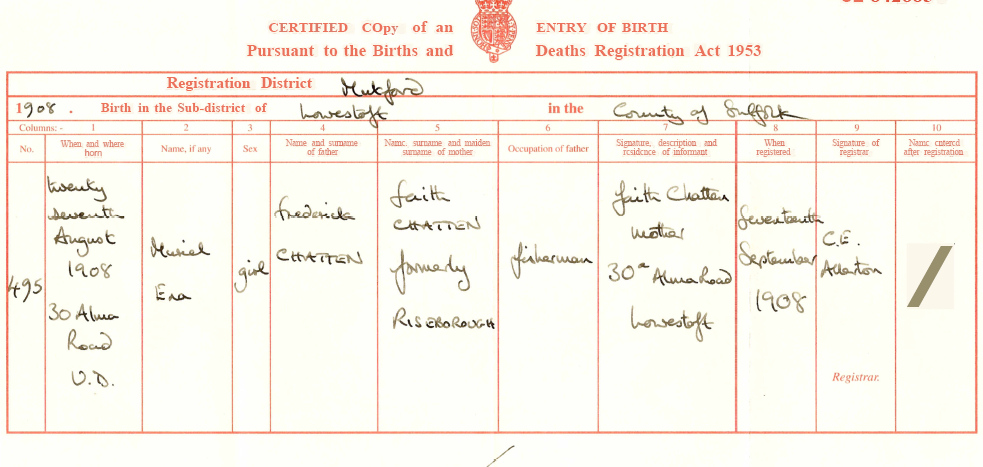 CERTIFIED COpy of an ENTRY OF BIRTH
Pursuant to the Births and Deaths Registration Act 1953
Registration District Mutford
1908. Birth in the Sub-district of Lowestoft in the County of Suffolk
Columns: - 1 2 3 4 5 6 7 8 9 10
No.
When and where born
Name, if any
Sex
Name and surname of father
Name, surname and maiden surname of mother
Occupation of father
Signature, description and residence of informant
When registered
Signature of registrar
Name entered after registration
495
twenty
seventh
August
1908
30 Alma
Road
U.D.
Muriel
Ena
girl
Frederick
CHATTEN
Faith
CHATTEN
formerly
RISEBOROUGH
fisherman
Faith Chatten
mother
30a Alma Road
Lowestoft
Seventeenth
September
1908
C.E.
Allerton
Registrar.